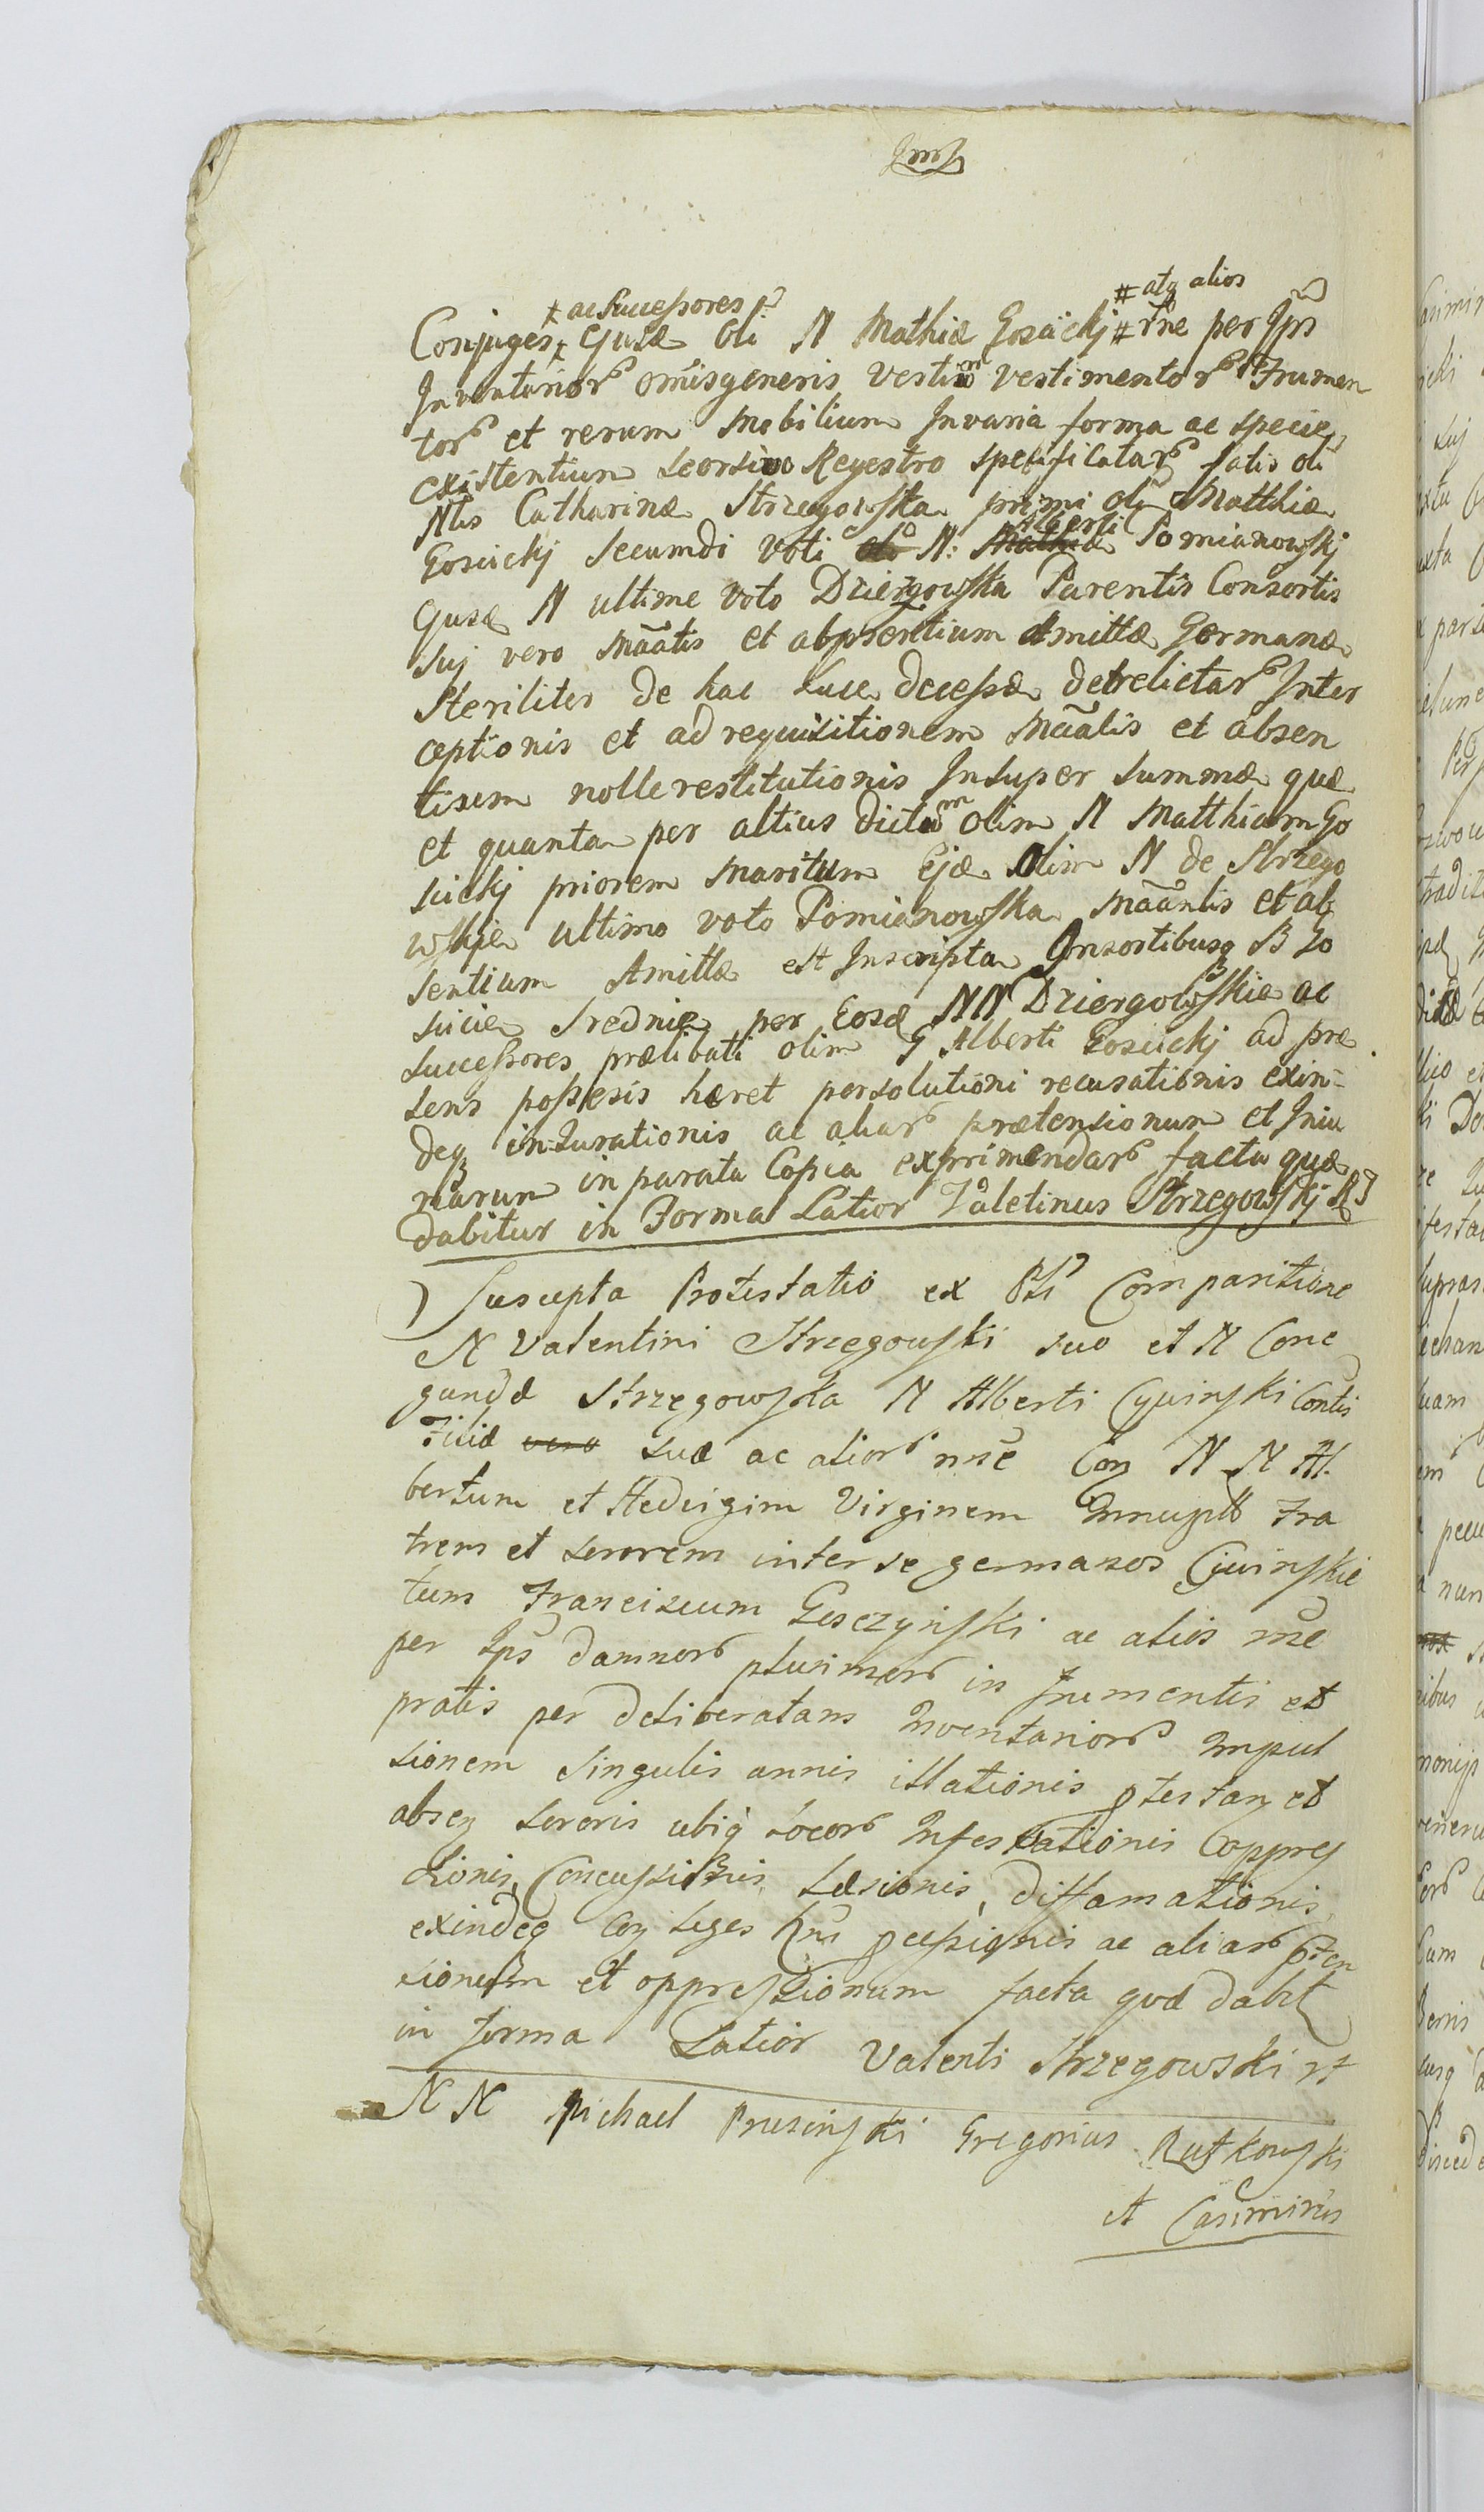 # ac Successores # atq alios
Conjuges # Ejusd Oli N Mathiæ Gosiickj # rne per Ips
Inventarior omisgeneris vestium vestimentor Frumen
tor et rerum Mobilium Invaria forma ac specie
existentium seorsivo Regestro specificatar satis oli
Nlis Catharinæ Strzegowska primi oli Matthiæ
Gosiickj Secumdi voti olo N: Mathiæ Alberti Pomianowskj
Ejusd N ultime voto Dziergowska Parentis Consortis
suj vero Maātis et abprsentium Amittæ Germanæ
Steriliter de hac Luce decessæ derelictar Inter
ceptionis et ad requisitionem Maālis et absen
tium nolle restitutionis Insuper summæ quæ
et quanta per altius dictum olim N Matthiam Go
scickj priorem maritum Ejæ Olim N de Strzego
wskje ultimo voto Pomianowska Maāntis et ab
sentium Amittæ est Inscripta Insortibusq B Go
scicie Srednie per Eosd NN Dziergowskie ac
successores prælibati olim G Alberti Gosiickj ad præ
sens possesis hæret persolutioni recusationis exin-
deq injurationis ac aliar prætensionum et Iniu
riarum in parata Copia exprimendar facta quæ
dabitur in Forma Lator Valetinus Strzegowskj
Suscepta Protestatio ex Pti Comparitione
N Valentini Strzegowski suo et N Cone
gundæ Strzegowska N Alberti Cywinski Contis
Filiæ vero suæ ac alior nne Con N N Al
bertum et Hedvigim Virginem Innupta Fra
trem et sororem inter se germanos Cywinskie
tum Franciscum Gesczynski ac alios rne
per Ips damnor plurimor in frumentis et
pratis per deliberatam Inventarior Impul
sionem singulis annis illationis ptestan et
absen sororis ubiq Locor Infestationis Coppres
sionis, Concussionis Læsionis, diffamationis
exindeq Con Leges Rni pcessionis ac aliar pten
sionum et oppressionum facta quæ dabit
in forma Latior Valenti Strzegowski
N N Michael Prusinski Gregorius Rutkowski
et Casimirus